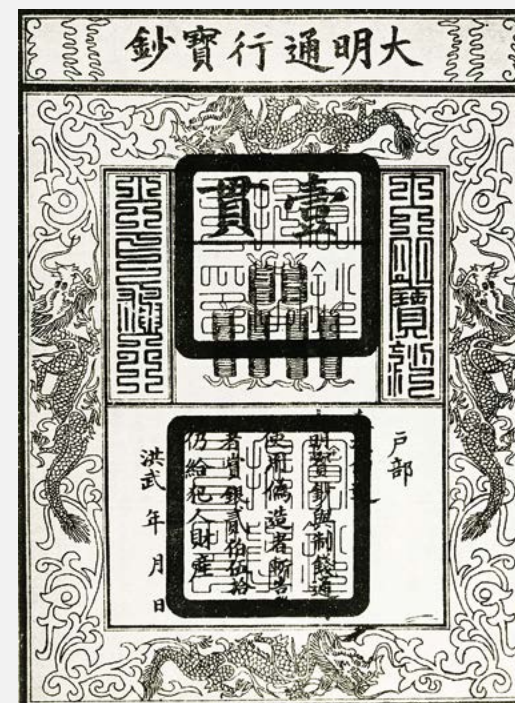 大明通行寶鈔
壹貫
大明寶鈔
天下通行
戶部
明寶鈔與制錢通
使用偽造者斬告
者賞銀貳伯伍拾
仍給犯人財產
洪武 年 月 日